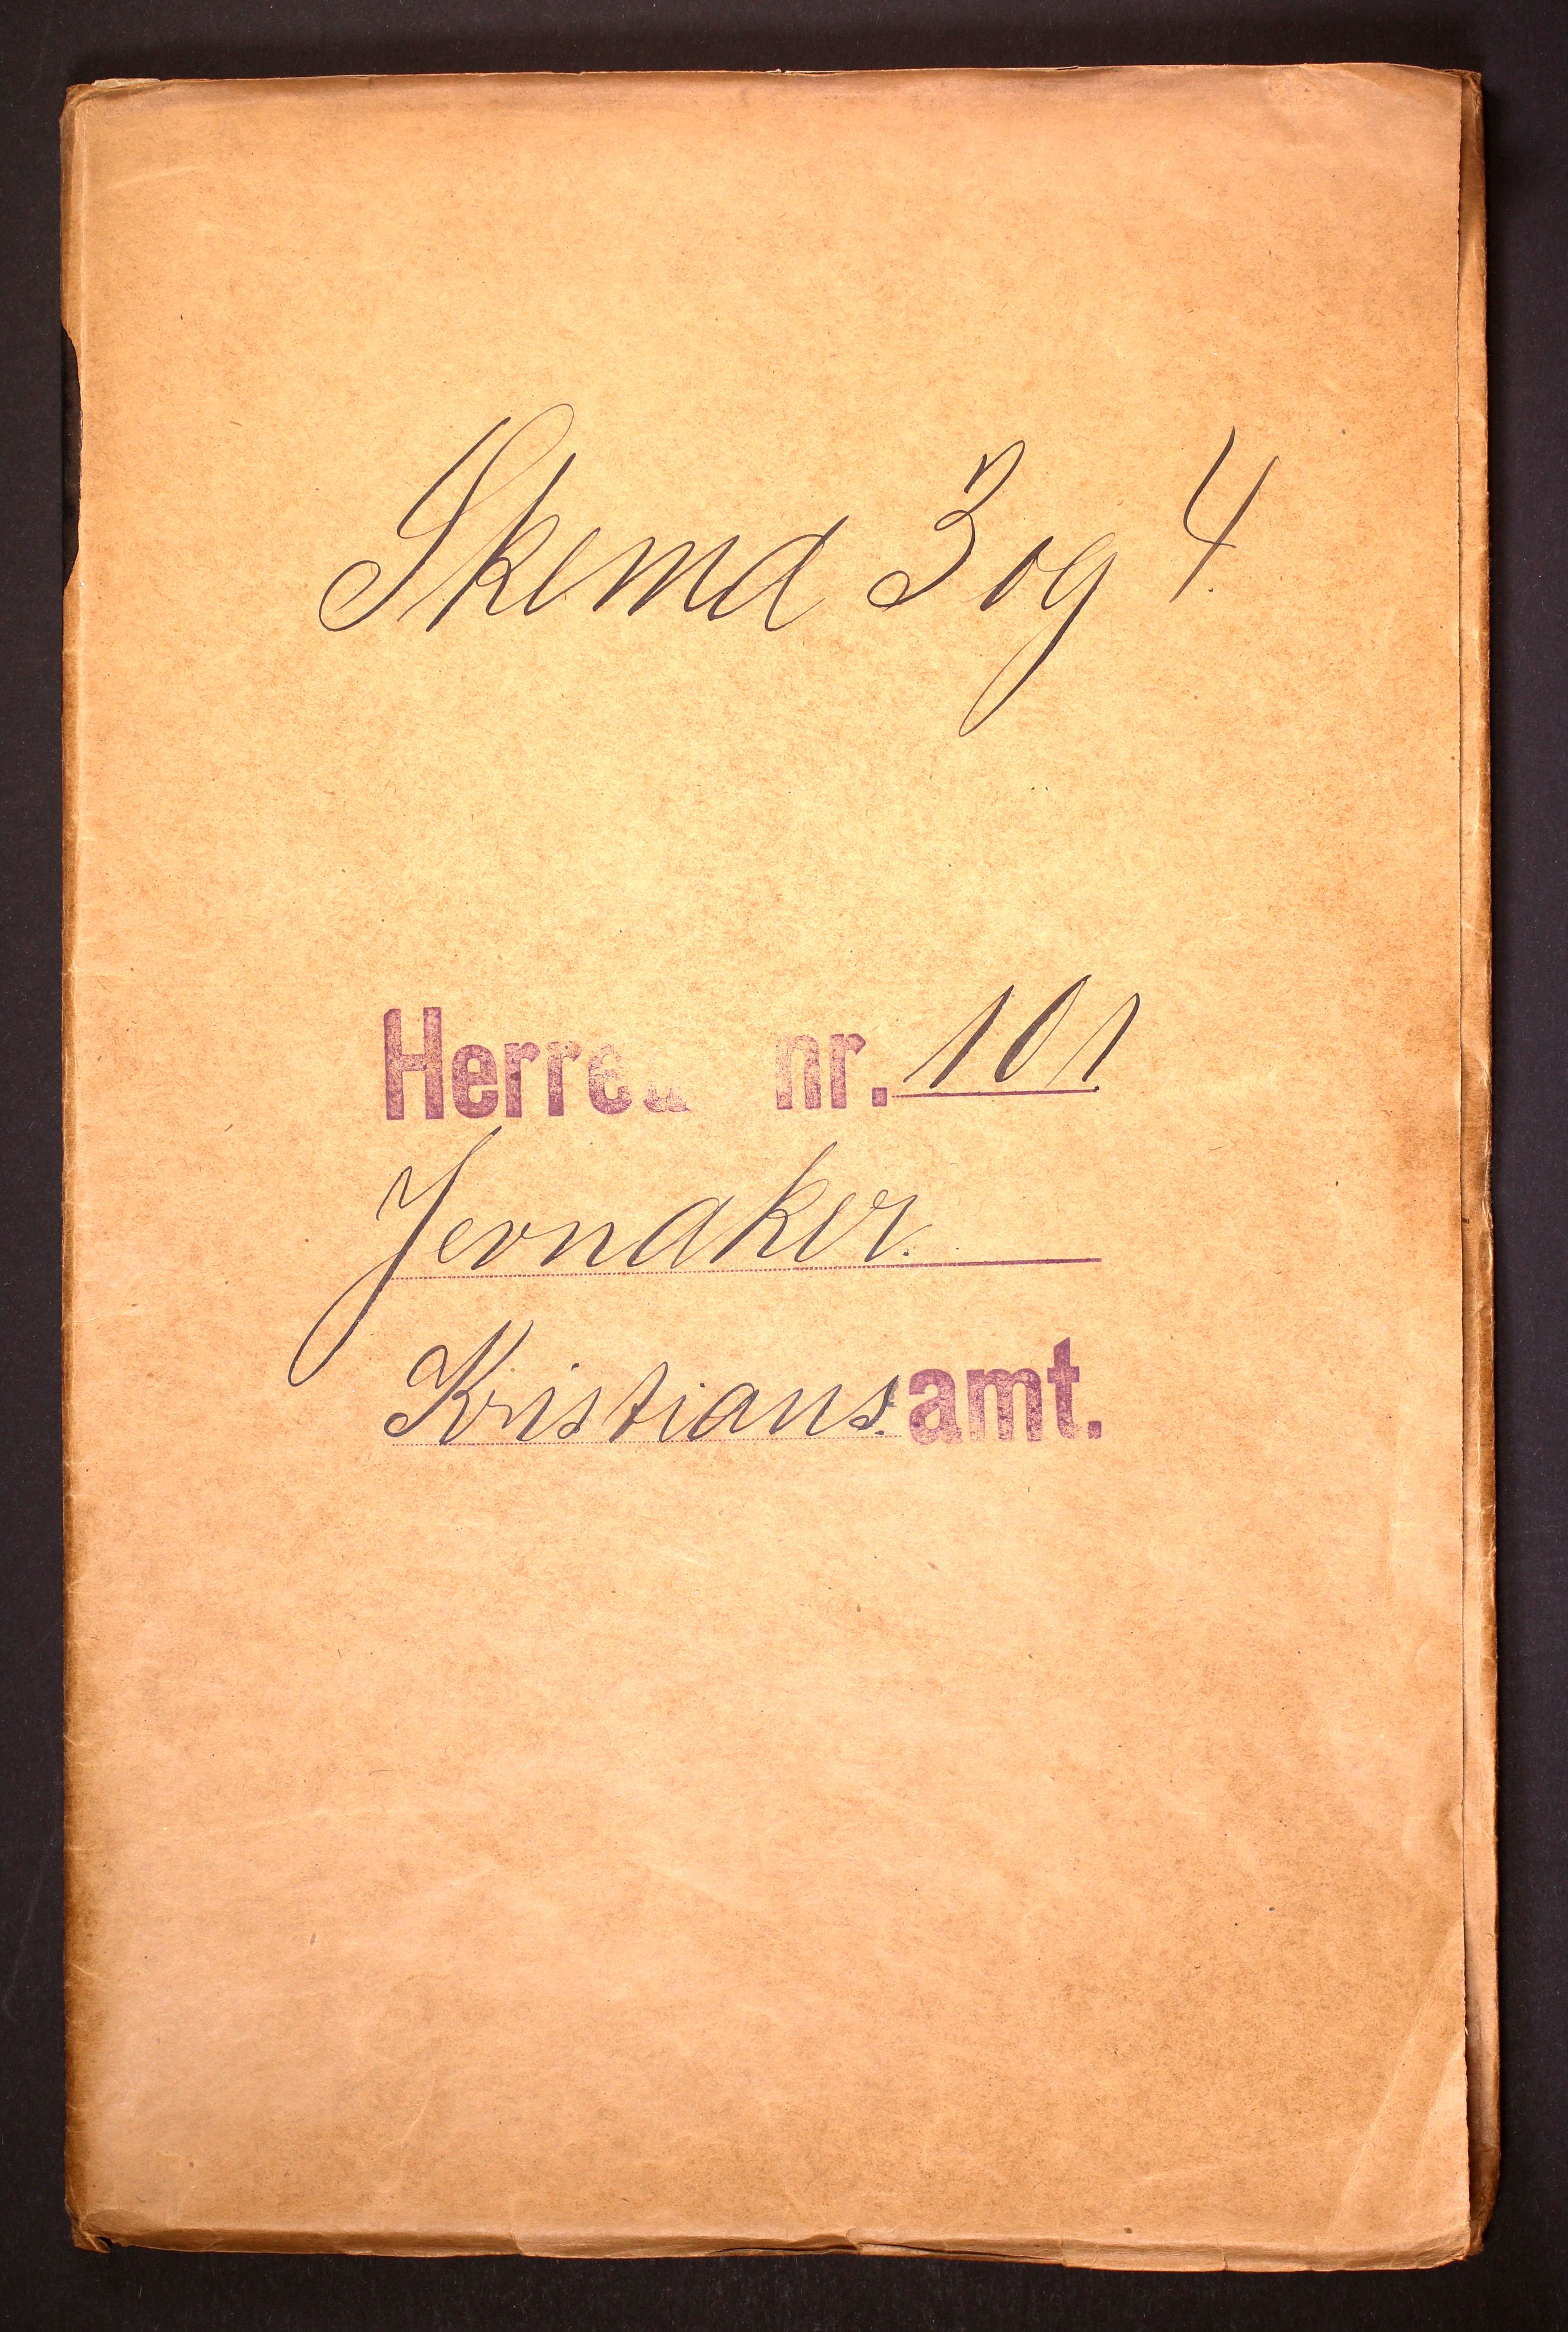 Skema 3 og 4.
Herred nr. 101
Jevnaker.
Kristians amt.